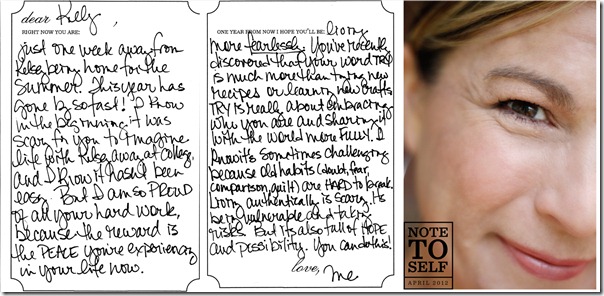 dear Kelly,
RIGHT NOW YOU ARE:
just one week away from
Kelsey being home for the
Summer. This year has
gone by so fast! I know
in the beginning it was
scary for you to imagine
life with Kelsey away at College,
and I know it hasn't been
easy. But I am so PROUD
of all your hard work,
because the reward is
the PEACE you're experiencing
in your life now.
ONE YEAR FROM NOW I HOPE YOU'LL BE: living
more fearlessly. You've recently
discovered that your word TRY
is much more than trying new
recipes or learning new crafts
TRY is really about embracing
who you are and sharing it
with the world more FULLY. I
know it's sometimes challenging
because old habits (doubt, fear,
comparison, guilt) are HARD to break.
Living authentically is scary. Its
being vulnerable and taking
risks. But its also full of HOPE
and possibility. You can do this!
love, me
NOTE
TO
SELF
APRIL 2012